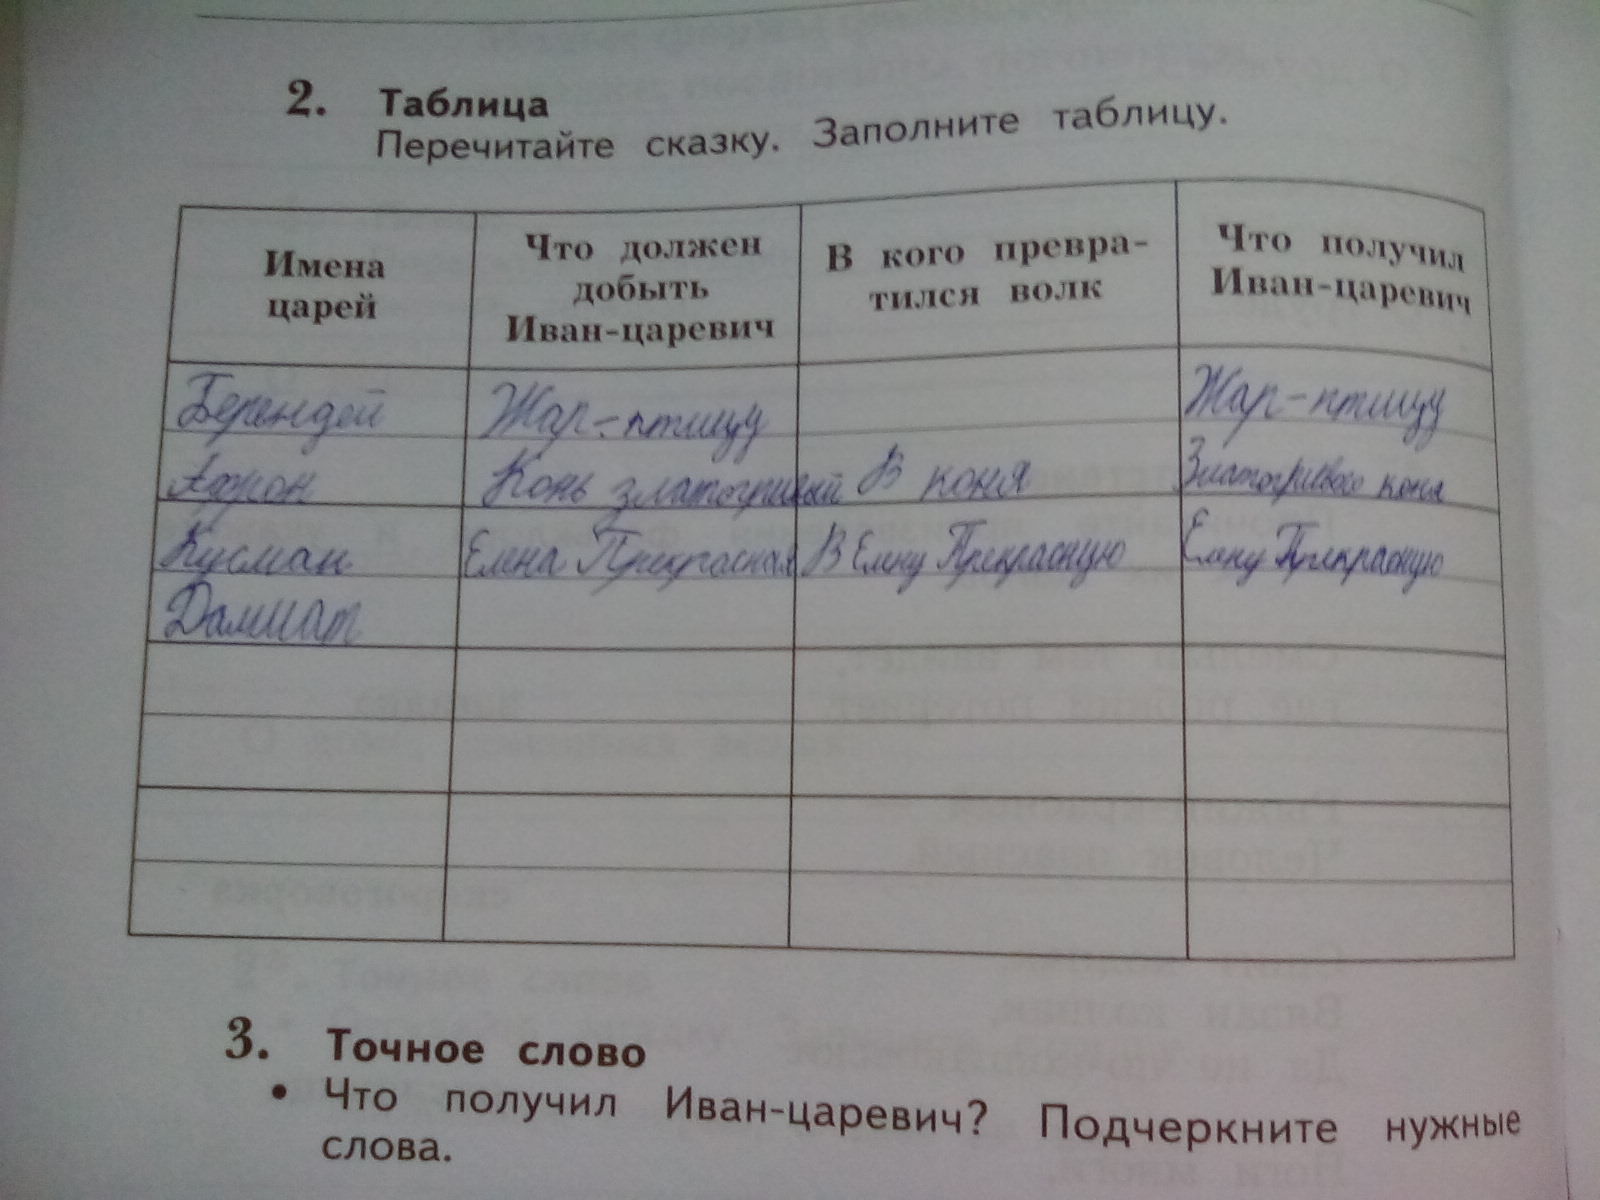 2. Таблица
Перечитайте сказку. Заполните таблицу.
Имена царей
Что должен добыть Иван-царевич
В кого превра-
тился волк
Что получил Иван-царевич
Берендей Жар-птицу Жар-птицу
Афрон Конь златогривый В коня Златогривого коня
Кусман Елена Прекрасная В Елену Прекрасную Елену Прекрасную
Далмат
3. Точное слово
• Что получил Иван-царевич? Подчеркните нужные
слова.